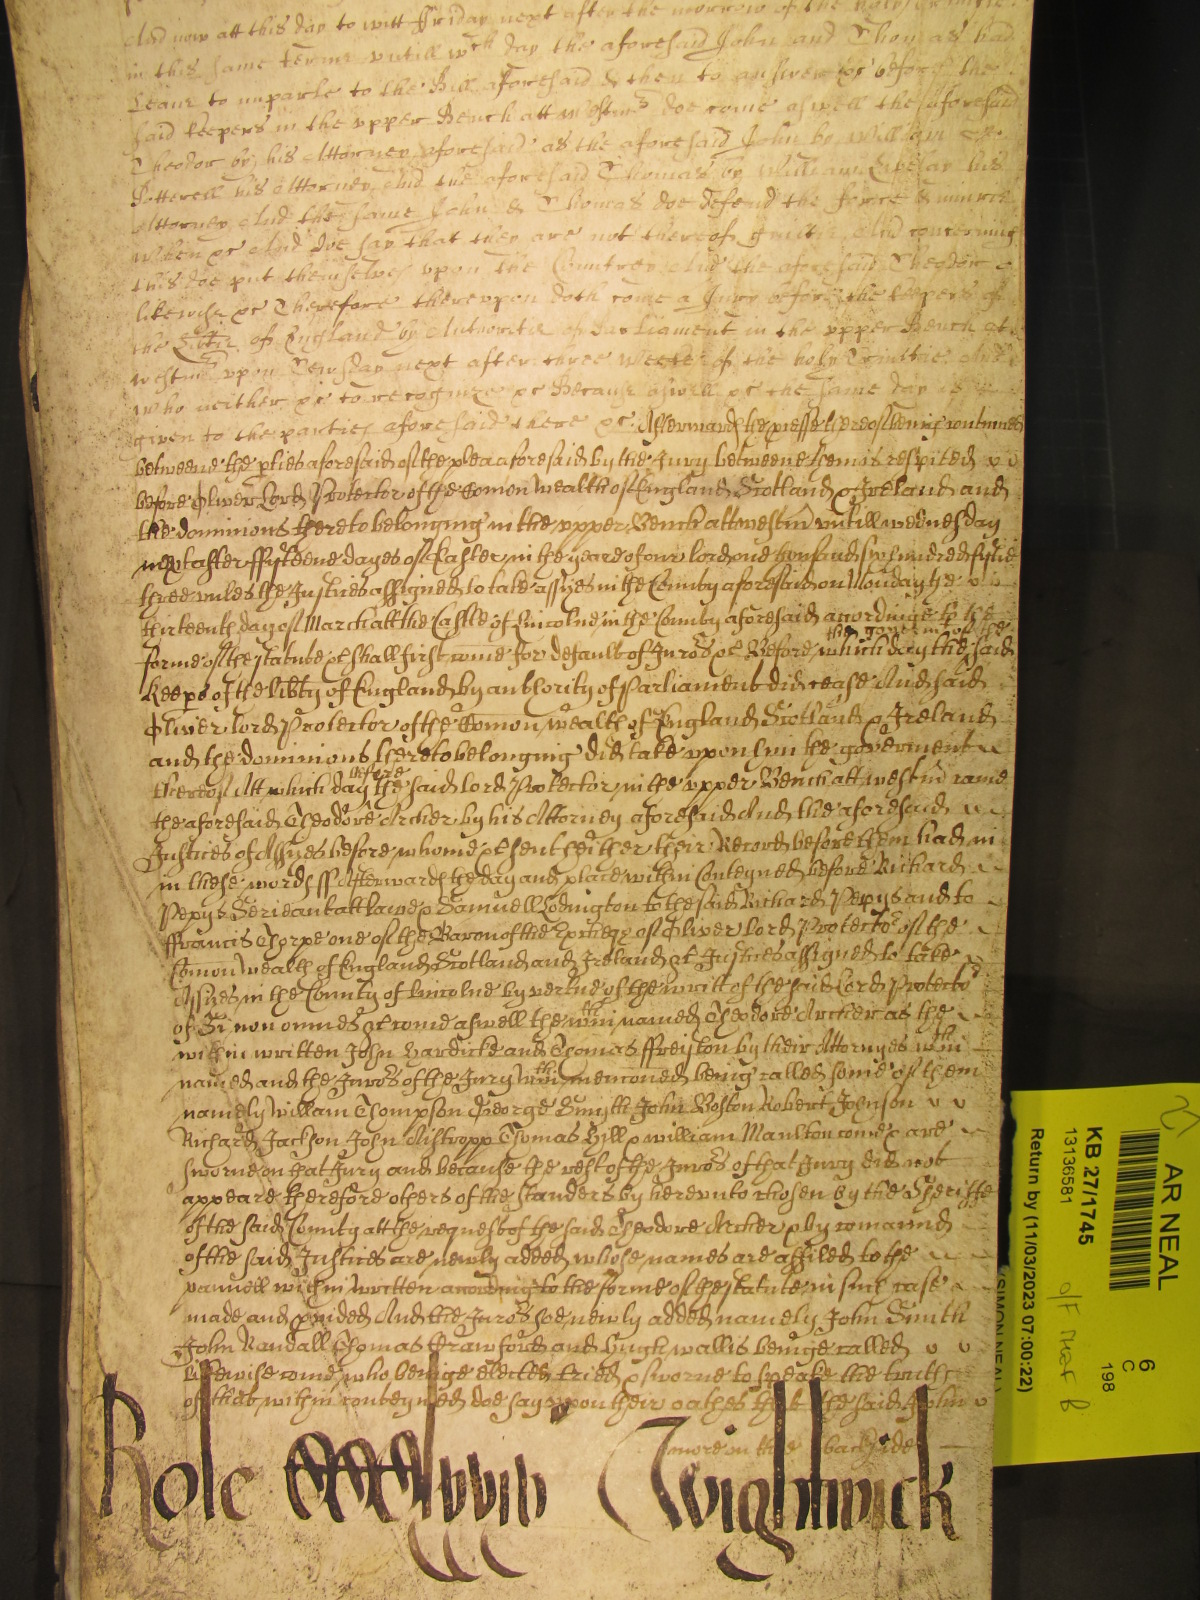 And now att this day to witt Friday next after the morrow of the holy Trinitie
in this same Terme untill wch day the aforesaid John and Thomas had
Leave to imparle to the Bill aforesaid & then to answer &c before the
said keepers in the upper Bench att Westmr doe come aswell the aforesaid
Theodor by his Attorney aforesaid as the aforesaid John by William
Botterell his Attorney And the aforesaid Thomas by William his
Attorney And the same John & Thomas doe defend the force & iniurie
when &c And doe say that they are not thereof guiltie And concerning
this doe put themselves upon the Countrey And the aforesaid Theodor
likewise &c Therefore thereupon doth come a Jury before the keepers of
the libtie of England by Authoritie of Parliament in the upper Bench at
Westmr upon Tewsday next after three weekes of the holy Trinitie And
who neither &c to recognize &c Because aswell &c the same day is
given to the parties aforesaid there &c Afterwards the processe thereof being continued
betweene the pties aforesaid of the plea aforesaid by the Jury betweene them is respited
before Oliver Lord Protector of the Comon wealth of England Scotland & Ireland and
the dominions thereto belonging in the upper Bench att westmr untill wednesday
next after ffyfteene dayes of Easter in the yeare of our lord one thousand six hundred fyftie
three unles the Justices assigned to take assizes in the County aforesaid on Monday the
thirteenth day of March att the Castle of Lincolne in the County aforesaid according to the
forme of the statute &c shall first come for default of Jurors &c Before which day the said
the governmt of the
keeps of the libty of England by authority of Parliament did cease And said
Oliver lord Protector of the Comon wealth of England Scotland & Ireland
and the dominions thereto belonging did take upon him the goverment
thereof Att which day before the said lord Protector in the upper Bench att westmr came
the aforesaid Theodore Archer by his Attorney aforesaid And the aforesaid
Justices of Assizes before whome &c sent hither their Record before them had in
in these words ss Afterwards the day and place within conteyned before Richard
Pepys Serieant att lawe & Samuell Lodington to the said Richard Pepys and to
ffrancis Thorpe one of the Baron of the Excheqr of Oliver lord Protector of the
Comon wealth of England Scotland and Ireland &c Justices assigned to take
Assizes in the County of Lincolne by vertue of the writt of the said Lord Protector
of Si non omnes &c come aswell the wthin named Theodore Archer as the
within written John Hardicke and Thomas ffreiston by their Attornyes wthin
named and the Jurors of the Jury wthin menconed being called some of them
namely william Thompson George Smyth John Boston Robert Johnson
Richard Jackson John Aistropp Thomas Hill & william Maulton come & are
sworne on that Jury and because the rest of the Jurors of that Jury did not
appeare therefore others of the standers by hereunto chosen by the Sheriffe
of the said County at the request of the said Theodore Archer & by comaund
of the said Justices are newly added whose names are affiled to the
pannell within written according to the forme of the statute in such case
made and pvided And the Jurors soe newly added namely John Smith
John Randall Thomas Crawford and Hugh wallis beinge called
likewise come who beinge elected tried & sworne to speake the truth
of that within conteyned doe say upon their oathes that the said John
more on the backside
Role Wightwick
AR NEAL
6
C
198
KB 27/1745
13136581
Return by (11/03/2023 07:00:22)
(SIMON NEAL)